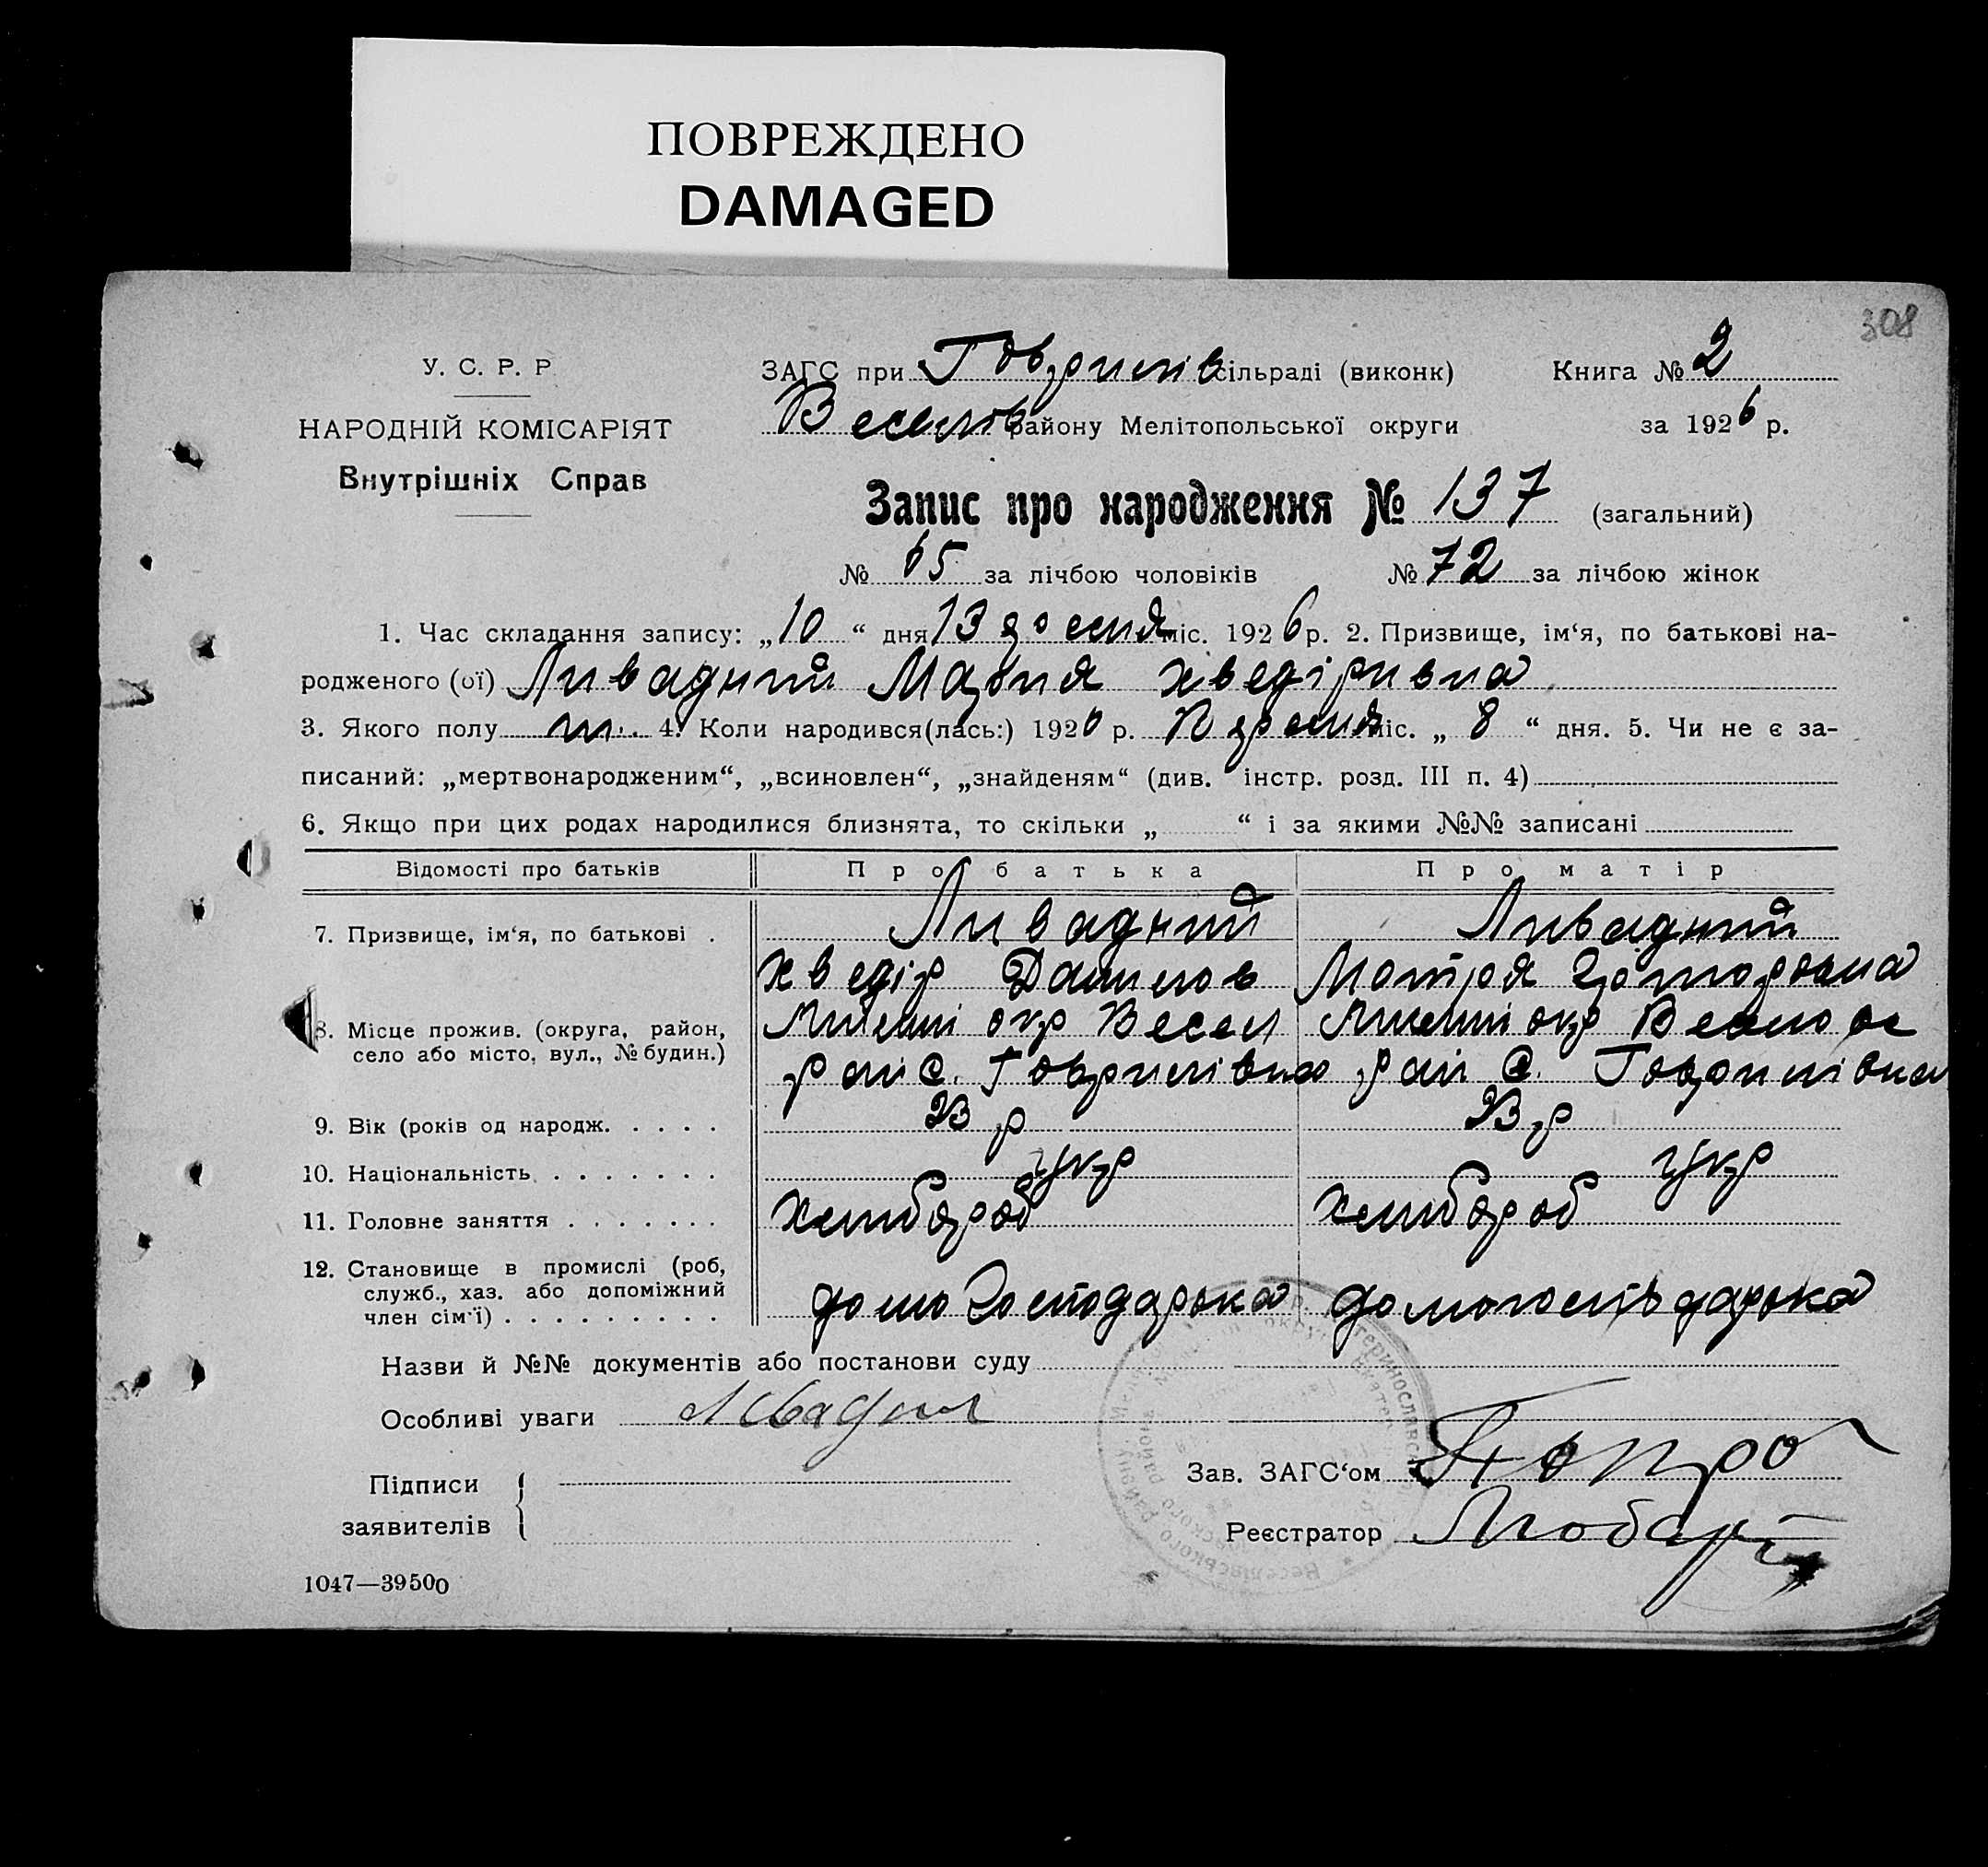 ПОВРЕЖДЕНО
DAMAGED
308
У. С. Р. Р
НАРОДНІЙ КОМІСАРІЯТ
Внутрішніх Справ
ЗАГС при Гаврилів сільраді (виконк)
Книга № 2
Веселов району Мелітопольської округи
за 1926 р.
Запис про народження № 137 (загальний)
№ 65 за лічбою чоловіків № 72 за лічбою жінок
1. Час складання запису: „10“ дня міс. 1926 р. 2. Призвище, ім‘я, по батькові на-
родженого (ої) Ливадний Мария Хведіривна
3. Якого полу 4. Коли народився(лась:) 1926 р. міс. „ 8 “ дня. 5. Чи не є за-
писаний: „мертвонародженим“, „всиновлен“, „знайденям“ (див. інстр. розд. III п. 4)
6. Якщо при цих родах народилися близнята, то скільки „ “ і за якими №№ записані
Відомості про батьків Про батька Про матір
7. Призвище, ім‘я, по батькові . Ливадний Ливадний
Хведір Данилов Мотря
8. Місце прожив. (округа, район, окр Весел окр
село або місто, вул., № будин.) рай с. Гаврилівка рай с. Гаврилівка
9. Вік (років од народж. . . . . 23 р 23 р
10. Національність . . . . . . . укр укр
11. Головне заняття . . . . . . . хлибороб хлибороб
12. Становище в промислі (роб,
служб., хаз. або допоміжний
член сім‘ї) . . . . . . . . . домогосподарька домогосподарька
Назви й №№ документів або постанови суду
Особливі уваги
Підписи
заявителів
Зав. ЗАГС‘ом
Реєстратор
1047—39500